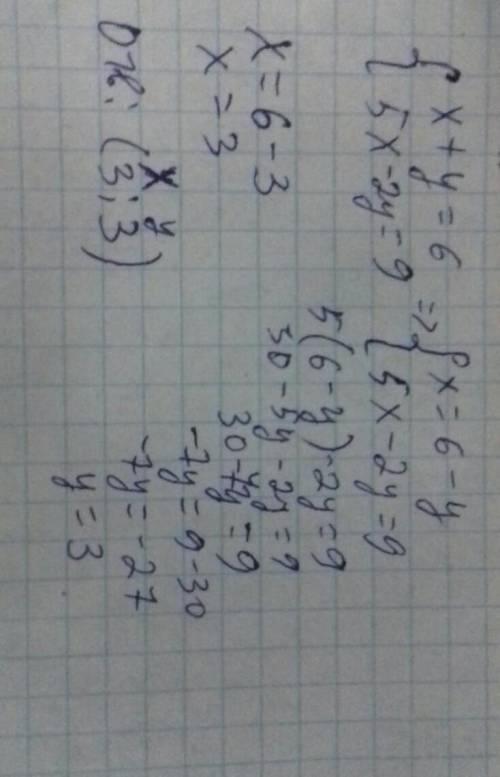 { x + y = 6 => { x = 6 - y
{ 5x - 2y = 9 { 5x - 2y = 9
5(6 - y) - 2y = 9
30 - 5y - 2y = 9
30 - 7y = 9
-7y = 9 - 30
-7y = -27
y = 3
x = 6 - 3
x = 3
x y
Отв: (3; 3)